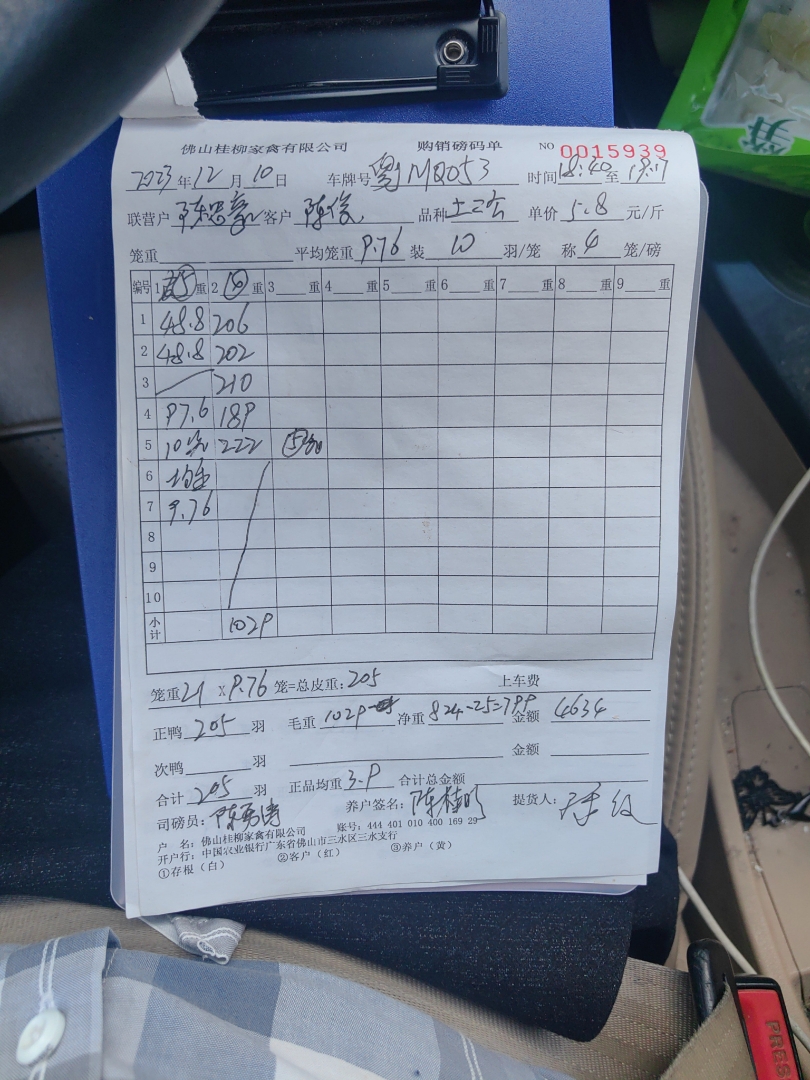 佛山桂柳家禽有限公司 购销磅码单 NO 0015939
2023年12月10日 车牌号 粤MQ053 时间18:40至
联营户 客户 陈俊 品种 土二 单价 5.8 元/斤
笼重 平均笼重 9.76 装 10 羽/笼 称 4 笼/磅
编号 1 ⑤ 重 2 重 3 重 4 重 5 重 6 重 7 重 8 重 9 重
1 48.8 206
2 48.8 202
3 210
4 97.6 189
5 10笼 222 ⑤
6 均重
7 9.76
8
9
10
小计 1029
笼重 21 X 9.76 笼=总皮重: 205 上车费
正鸭 205 羽 毛重 1029 净重 824-25=799 金额 4634
次鸭 羽 金额
合计 205 羽 正品均重 3.9 合计总金额
司磅员: 养户签名: 提货人:
户 名: 佛山桂柳家禽有限公司 账号: 444 401 010 400 169 29
开户行: 中国农业银行广东省佛山市三水区三水支行
①存根（白） ②客户（红） ③养户（黄）
笋
PRES